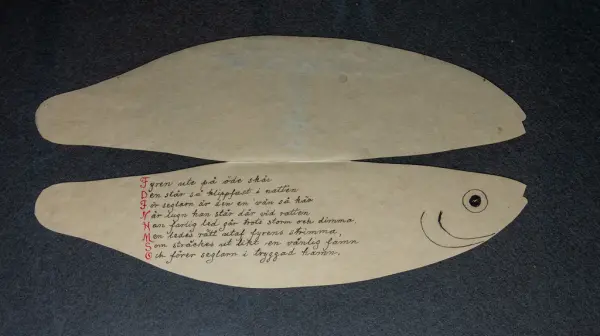 Fyren ute på öde skär
Den står så klippfast i natten
För seglarn är den en vän så kär
När lugn han står där vid ratten
Han farlig led går trots storm och dimma
Men ledes rätt utaf fyrens strimma,
Som sträckes ut likt en vänlig famn
Och förer seglarn i tryggad hamn.